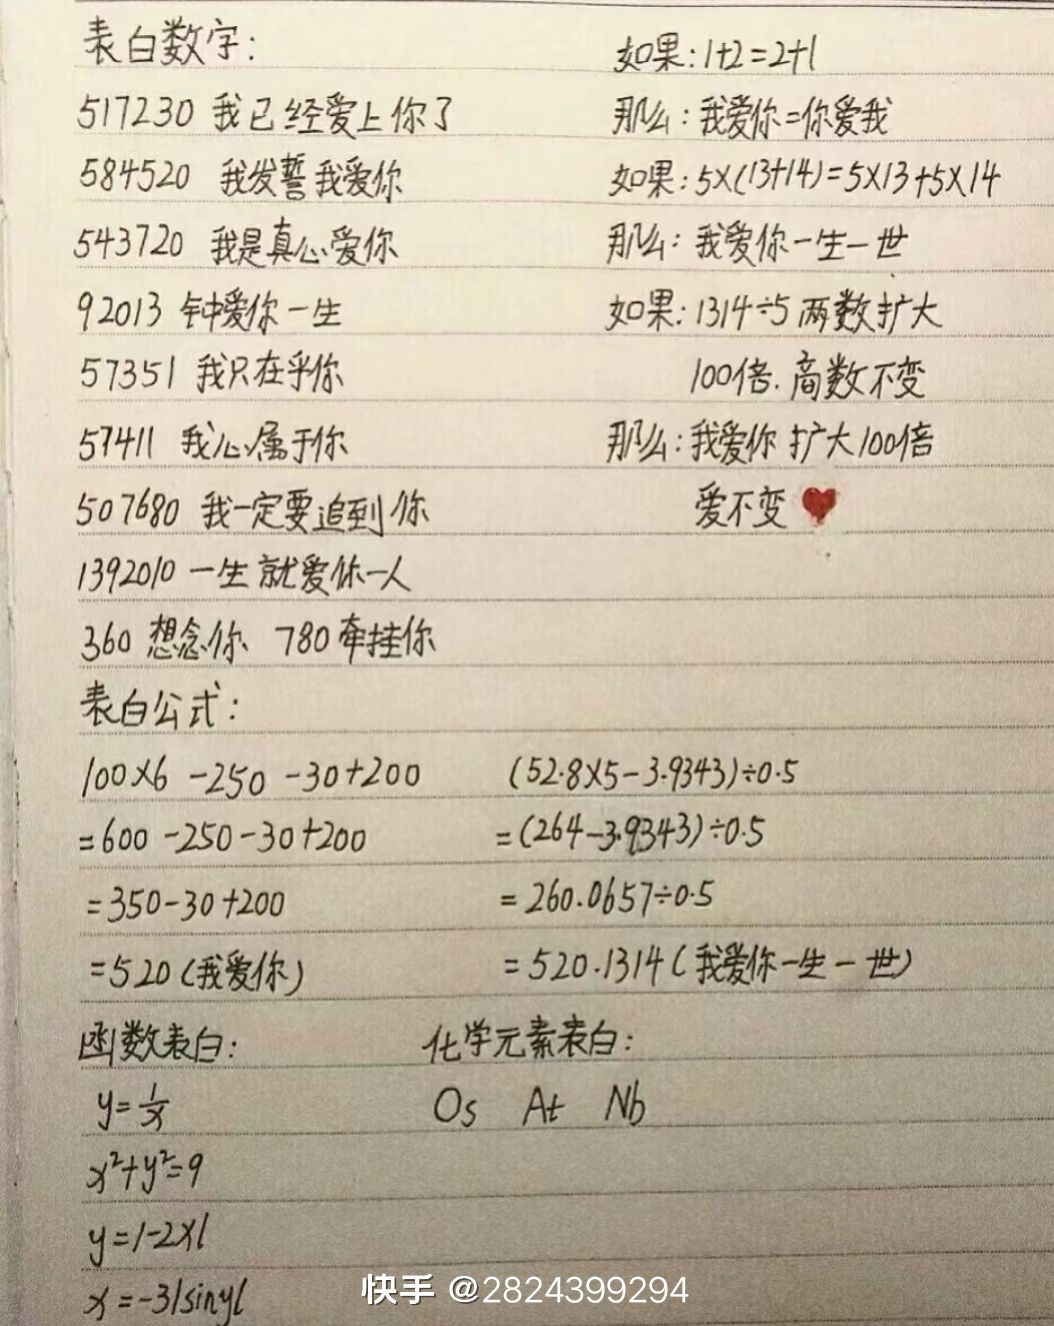 表白数字:
517230 我已经爱上你了
584520 我发誓我爱你
543720 我是真心爱你
92013 钟爱你一生
57351 我只在乎你
57411 我心属于你
507680 我一定要追到你
1392010 一生就爱你一人
360 想念你 780 牵挂你
如果:1+2=2+1
那么:我爱你=你爱我
如果:5×(13+14)=5×13+5×14
那么:我爱你一生一世
如果:1314÷5 两数扩大
100倍.商数不变
那么:我爱你 扩大100倍
爱不变
表白公式:
100×6 -250 -30+200
=600 -250-30+200
=350-30+200
=520(我爱你)
(52.8×5-3.9343)÷0.5
=(264-3.9343)÷0.5
=260.0657÷0.5
=520.1314(我爱你一生一世)
函数表白:
y=1/x
x²+y²=9
y=|-2x|
x=-3|siny|
化学元素表白:
Os At Nb
快手 @2824399294